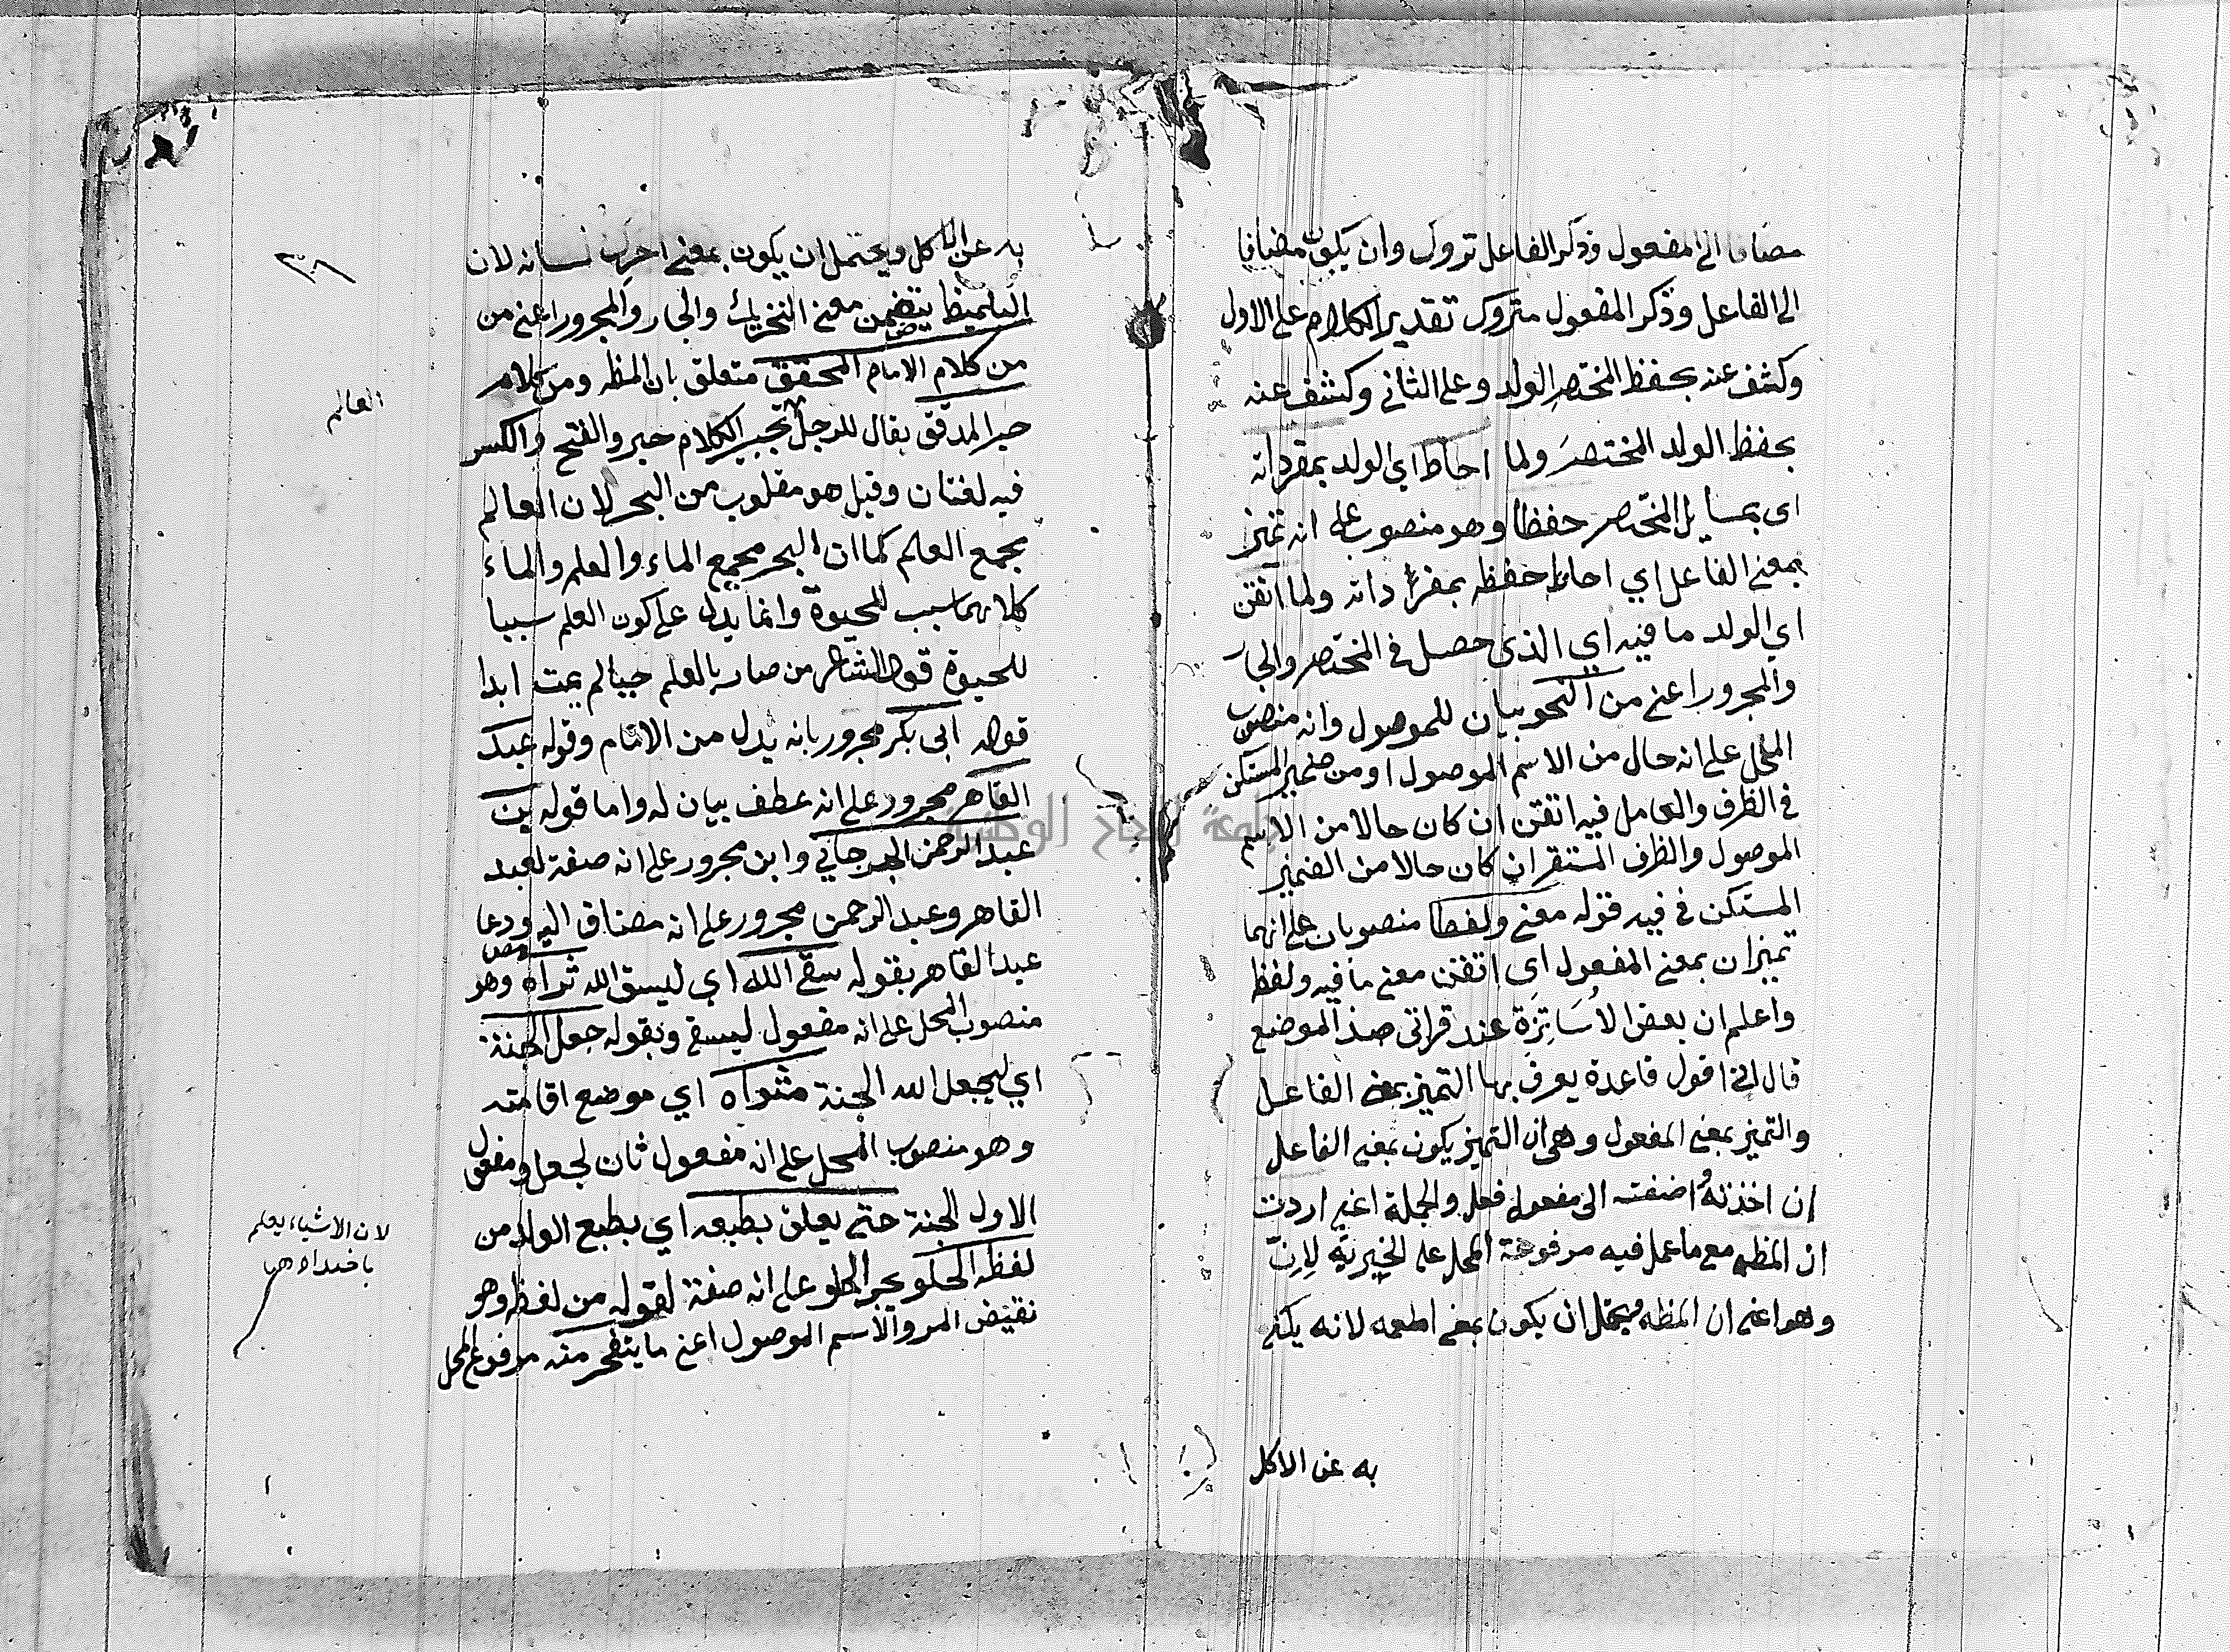 مضافا الى المفعول وذكر الفاعل تروك وان يكون مضافا
الى الفاعل وذكر المفعول متروك تقدير الكلام على الاول
وكشف عنه بحفظ المختصرِ الولد وعلى الثاني وكشف عنه
بحفظ الولد المختصرَ ولما احاط اي الولد بمفرداته
اى بمسايل المختصر حفظا وهو منصوب على انه تميز
بمعنى الفاعل اي احاط حفظه بمفرداته ولما اتقن
اي الولد ما فيه اي الذى حصل في المختصر والجار
والمجرور اعنى من النحو بيان للموصول وانه منصوب
المحل على انه حال من الاسم الموصول او من ضمير المستكن
في الظرف والعامل فيه اتقن ان كان حالا من الاسم
الموصول والظرف المستقر ان كان حالا من الضمير
المستكن في فيه قوله معنى ولفظا منصوبان على انهما
تميزان بمعنى المفعول اى اتقن معنى ما فيه ولفظ
واعلم ان بعض الاُسَاتِزَة عند قراتى هذ الموضع
قال لي اقول قاعدة يعرف بها التميز بمعنى الفاعل
والتميز بمعنى المفعول وهى ان التميز يكون بمعنى الفاعل
ان اخذتهُ اضفت الى مفعول فعله والجملة اعنى اردت
ان المظه مع ما عمل فيه مرفوعة المحل على الخيرية لِاِنّ
وهو اعنى ان المظه ويحتمل ان يكون بمعنى اطعمه لانه يكنى
به عن الاكل
به عن الاكل ويحتمل ان يكون بمعنى احرك لسانه لان
التلميظ يتضمن معنى التحريك والجار والمجرور اعنى من
من كلام الامام المحقق متعلق بان المظه ومن كلام
حبر المدقق يقال للرجل تحبير الكلام حبر والفتح والكسر
فيه لغتان وقيل هو مقلوب من البحر لان العالم
بجمع العلم كما ان البحر مجمع الماء والعلم والماء
كلاهما سبب للحيوة وانما يدل على كون العلم سببا
للحيوة قول الشاعر من صار بالعلم حيا لم يمت ابدا
قوله ابى بكر مجرور بانه بدل من الامام وقوله عبد
القاهر مجرور على انه عطف بيان له واما قوله بن
عبد الرحمن الجرجاني وابن مجرور على انه صفة لعبد
القاهر وعبد الرحمن مجرور على انه مضاف اليه ودعا
عبد القاهر بقوله سقى الله اي ليسق الله ثراه وهو
منصوب المحل على انه مفعول ليسقى وبقوله جعل الجنة
اي ليجعل الله الجنة مثواه اي موضع اقامته
وهو منصوب المحل على انه مفعول ثان لجعل ومفعول
الاول الجنة حتى يعلق بطبعه اي بطبع الولد من
لفظه الحلو بجر الحلو على انه صفة لقوله من لفظه وهو
نقيض المر والاسم الموصول اعنى ما يتفجر منه مرفوع المحل
العالم
لان الاشياء يعلم
باضدادها
جامعة النجاح الوطنية